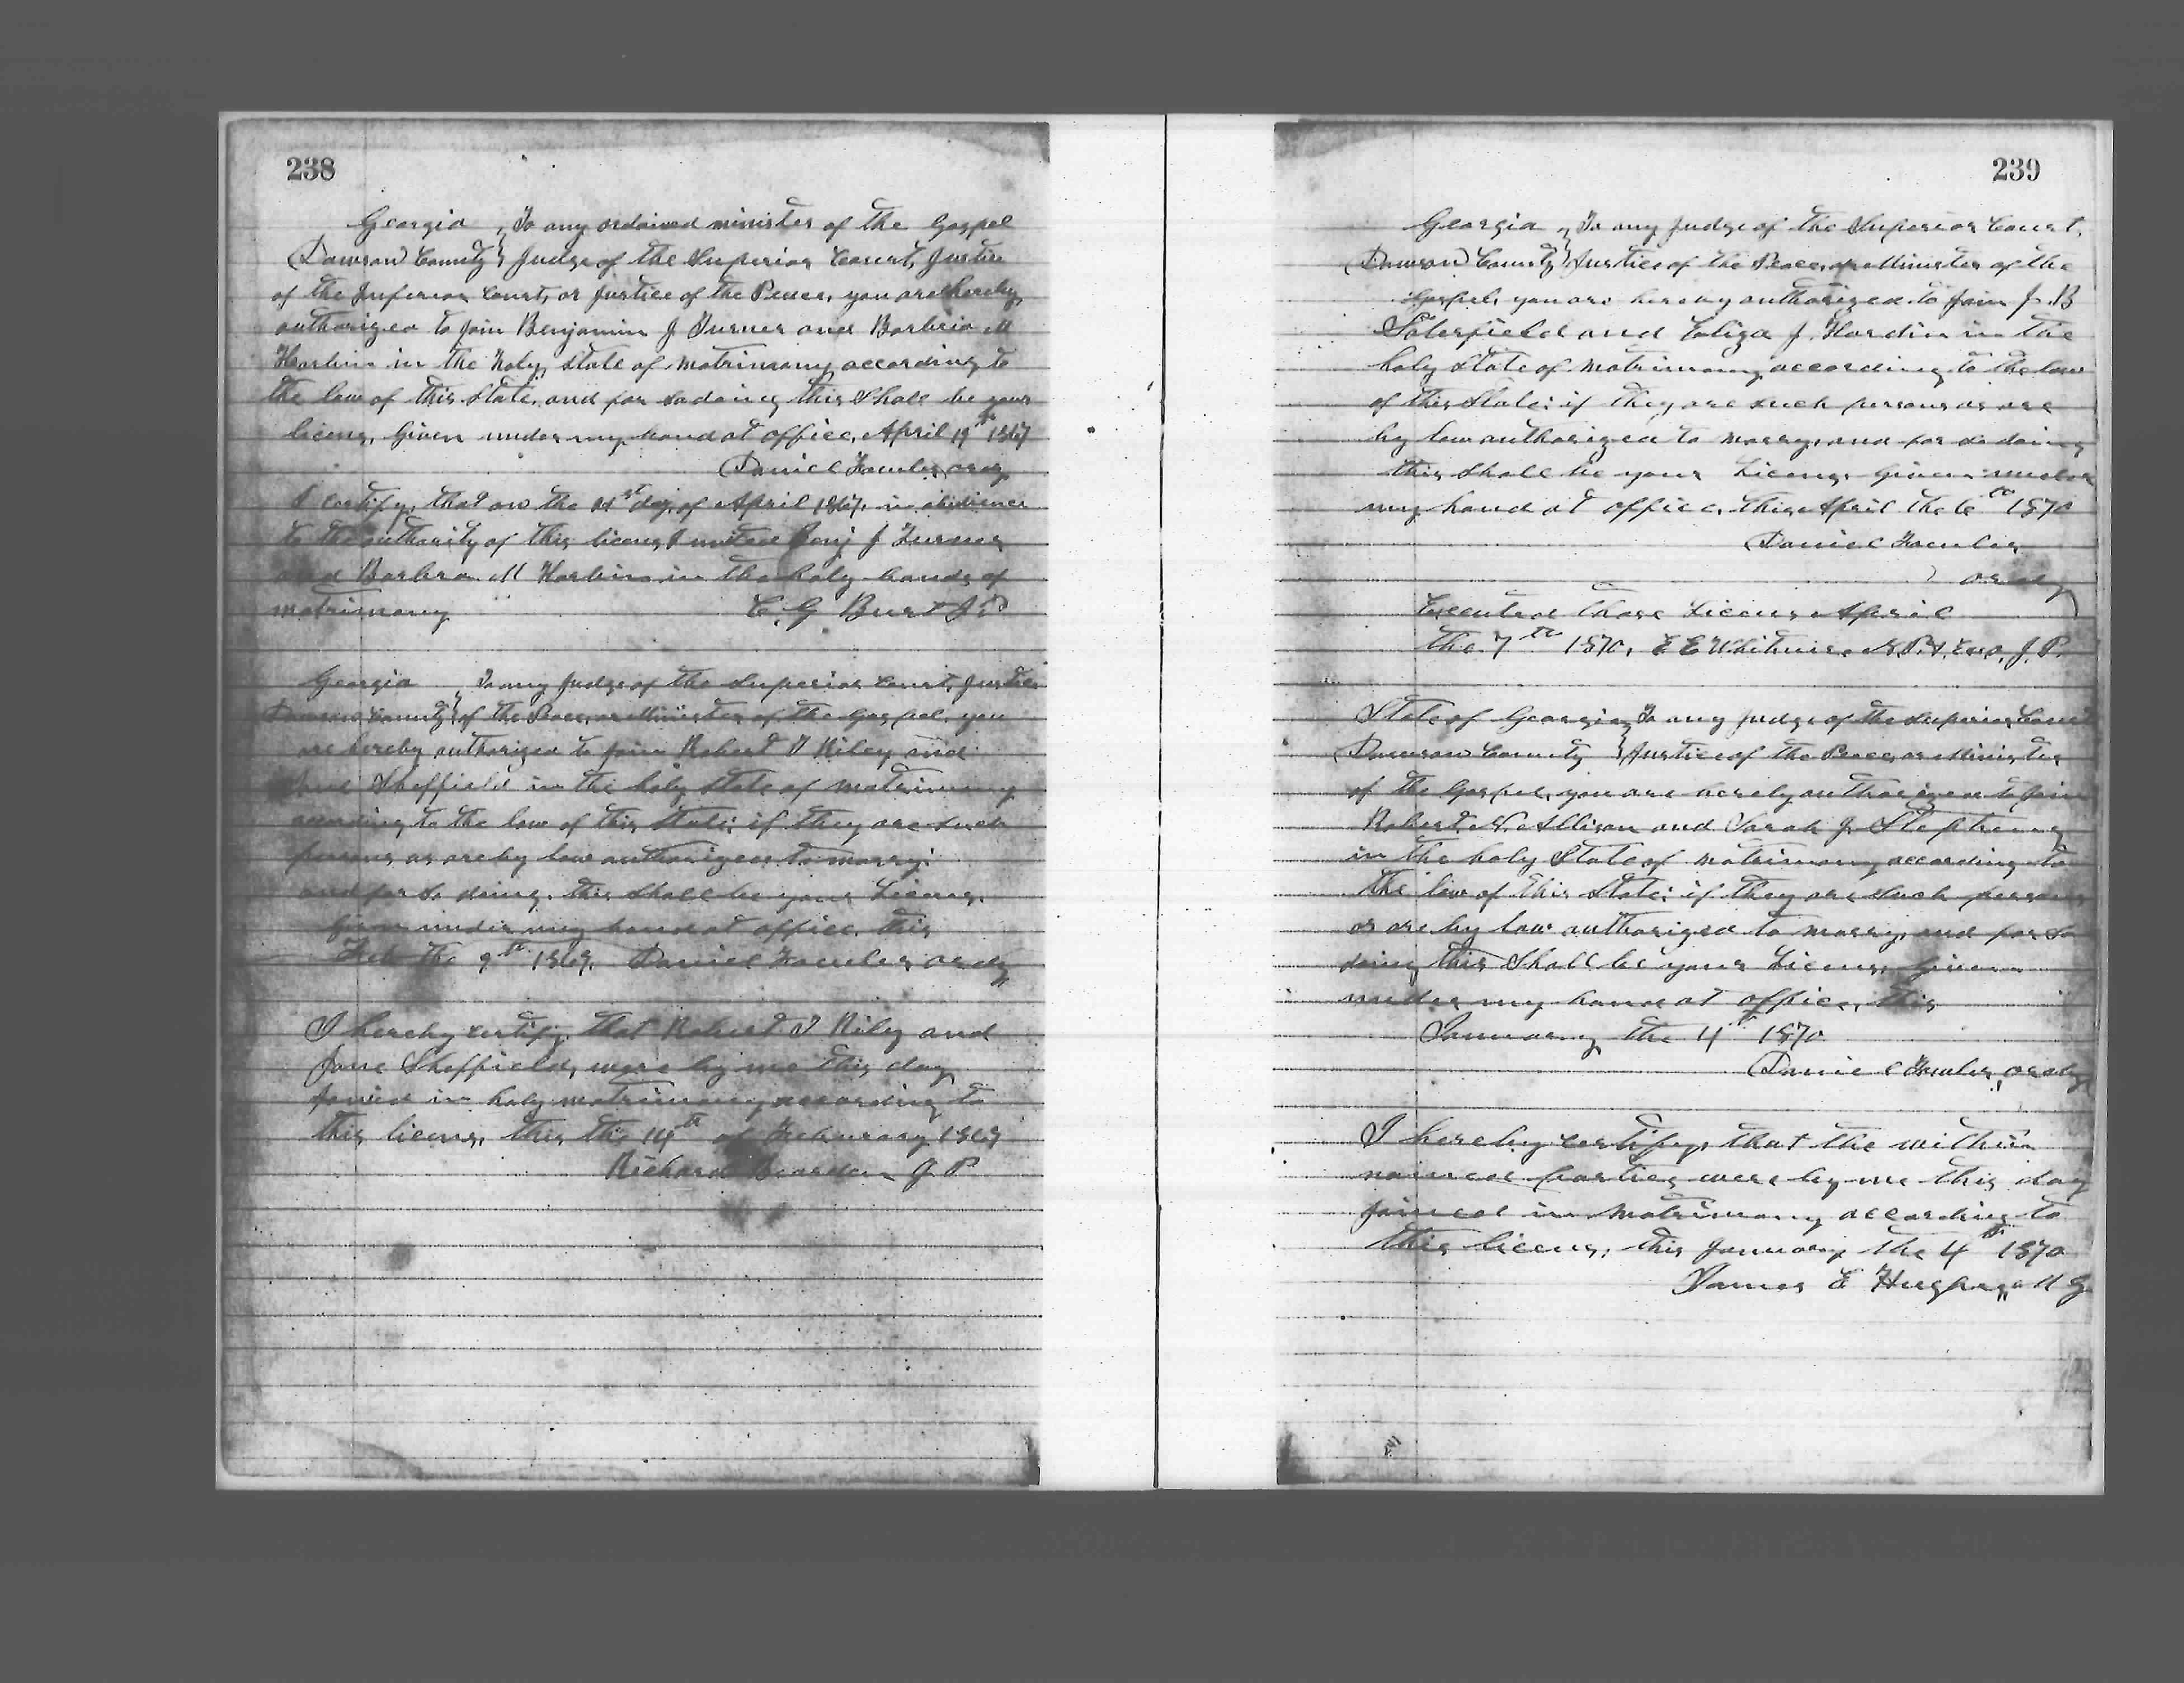 238
Georgia } To any ordained minister of the Gospel
Dawson County } Judge of the Superior Court, Justice
of the Inferior Court, or Justice of the Peace, you are hereby
authorized to join Benjamin J Turner and Barbria M
Harbin in the holy state of matrimony according to
the law of this State, and for so doing this shall be your
licens, Given under my hand at office, April 19th 1867
Daniel Fowler, ordy
I certify, that on the day of April 1867, in obedience
to the authority of this licens I united Benj J Turner
and Barbra M Harbin in the holy bands of
matrimony C. G Burt J. P
Georgia } To any Judge of the Superior Court, Justice
Dawson County } of the Peace, or Minister of the Gospel, you
are hereby authorized to join Robert T Riley and
Jane Sheffield in the holy state of matrimony
according to the law of this State; if they are such
persons as are by law authorized to marry;
and for so doing, this shall be your Licens,
Given under my hand at office, this
Feb the 9th 1869. Daniel Fowler ordy
I hereby certify, that Robert T Rily and
Jane Sheffield, were by me this day
joined in holy matrimony according to
this licens, this the 14th of February 1869
Richard Bearden J. P
239
Georgia } To any Judge of the Superior Court,
Dawson County } Justice of the Peace, or Minister of the
Gospel, you are hereby authorized to join J. B
Saterfield and Eliza J. Hardin in the
holy state of matrimony according to the law
of this State; if they are such persons as are
by law authorized to marry, and for so doing
this shall be your Licens, Given under
my hand at office, this April the 6th 1870
Daniel Fowler
ordy
Executed these Licens April
the 7th 1870, E E Whitmire N. P. & Exo, J. P.
State of Georgia } To any Judge of the Superior Court
Dawson County } Justice of the Peace, or Minister
of the Gospel, you are hereby authorized to join
Robert N. Allison and Sarah J.
in the holy State of matrimony according to
the law of this State; if they are such persons
as are by law authorized to marry, and for so
doing this shall be your Licens, Given
under my hand at office, this
January the 4th 1870
Daniel Fowler, ordy
I hereby certify, that the within
named parties were by me this day
joined in matrimony according to
this licens, this January the 4th 1870
James E M G